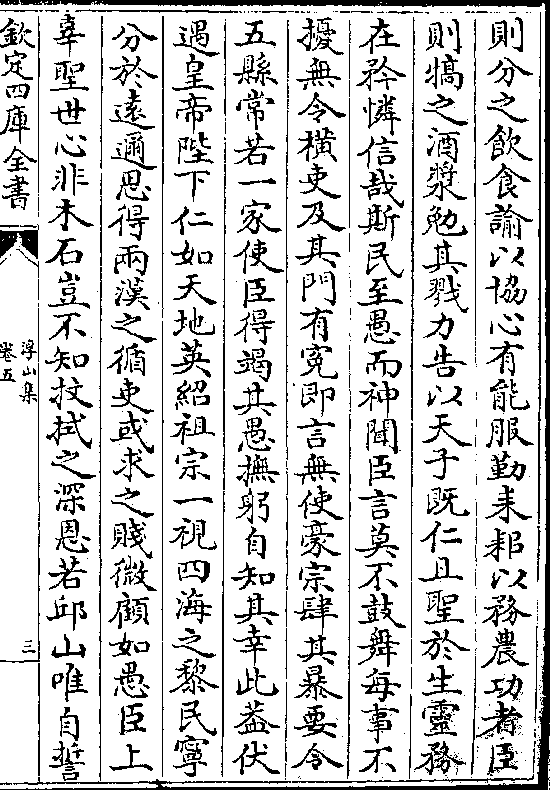 則分之飲食諭以協心有能服勤耒耜以務農功者臣
則犒之酒漿勉其戮力告以天子既仁且聖於生靈務
在矜憐信哉斯民至愚而神聞臣言莫不鼓舞每事不
擾無令橫吏及其門有寃即言無使豪宗肆其暴要令
五縣常若一家使臣得竭其愚撫躬自知其幸此葢伏
遇皇帝陛下仁如天地英紹祖宗一視四海之黎民寧
分於遠邇思得兩漢之循吏或求之賤微顧如愚臣上
辜聖世心非木石豈不知抆拭之深恩若邱山唯自誓
欽定四庫全書
浮山集
卷五
三